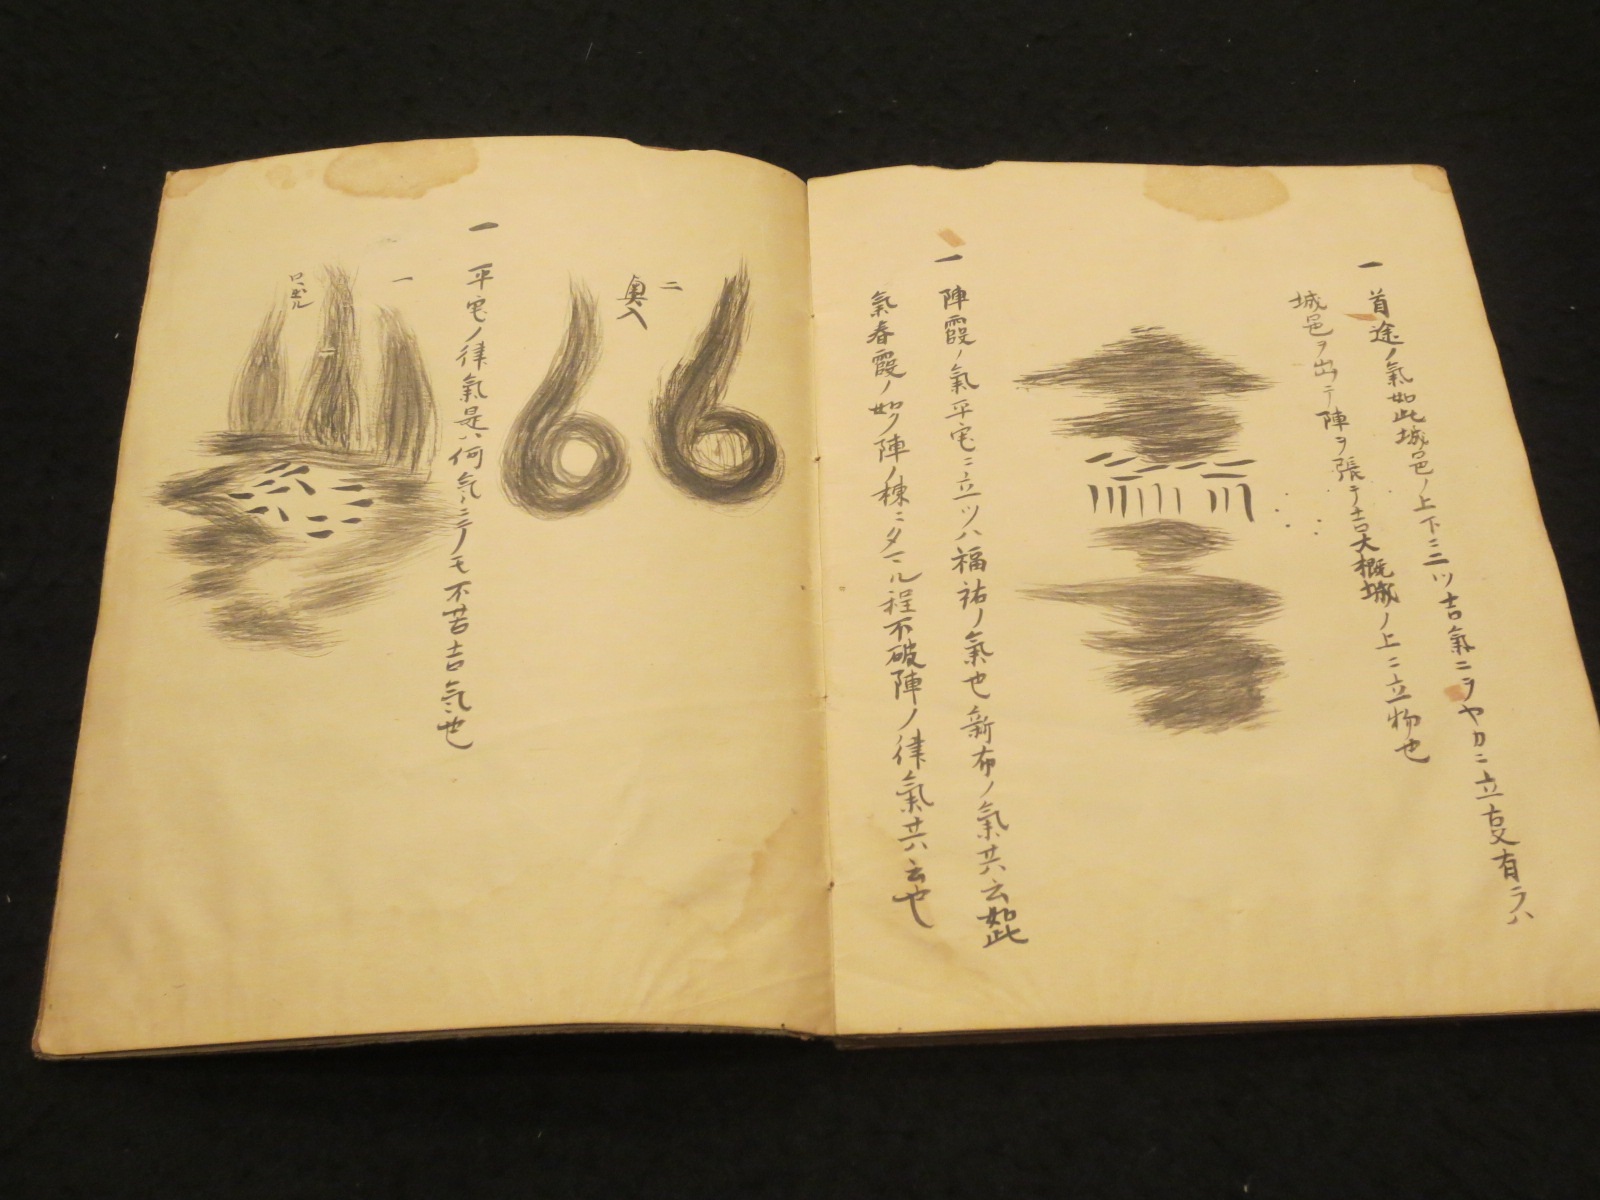 一 首途ノ氣如此城邑ノ上下ニ二ツ吉氣ニラヤカニ立叓有ラハ
城邑ヲ出テ陣ヲ張テ吉大概城ノ上ニ立物也
一 陣霞ノ氣平宅ニ立ツハ福祐ノ氣也新布ノ氣共云如此
氣春霞ノ如ク陣ノ棟ニタマル程不破陣ノ律氣共云也
二
奥入
一 平宅ノ律氣是ハ何氣ニテモ不苦吉氣也
一